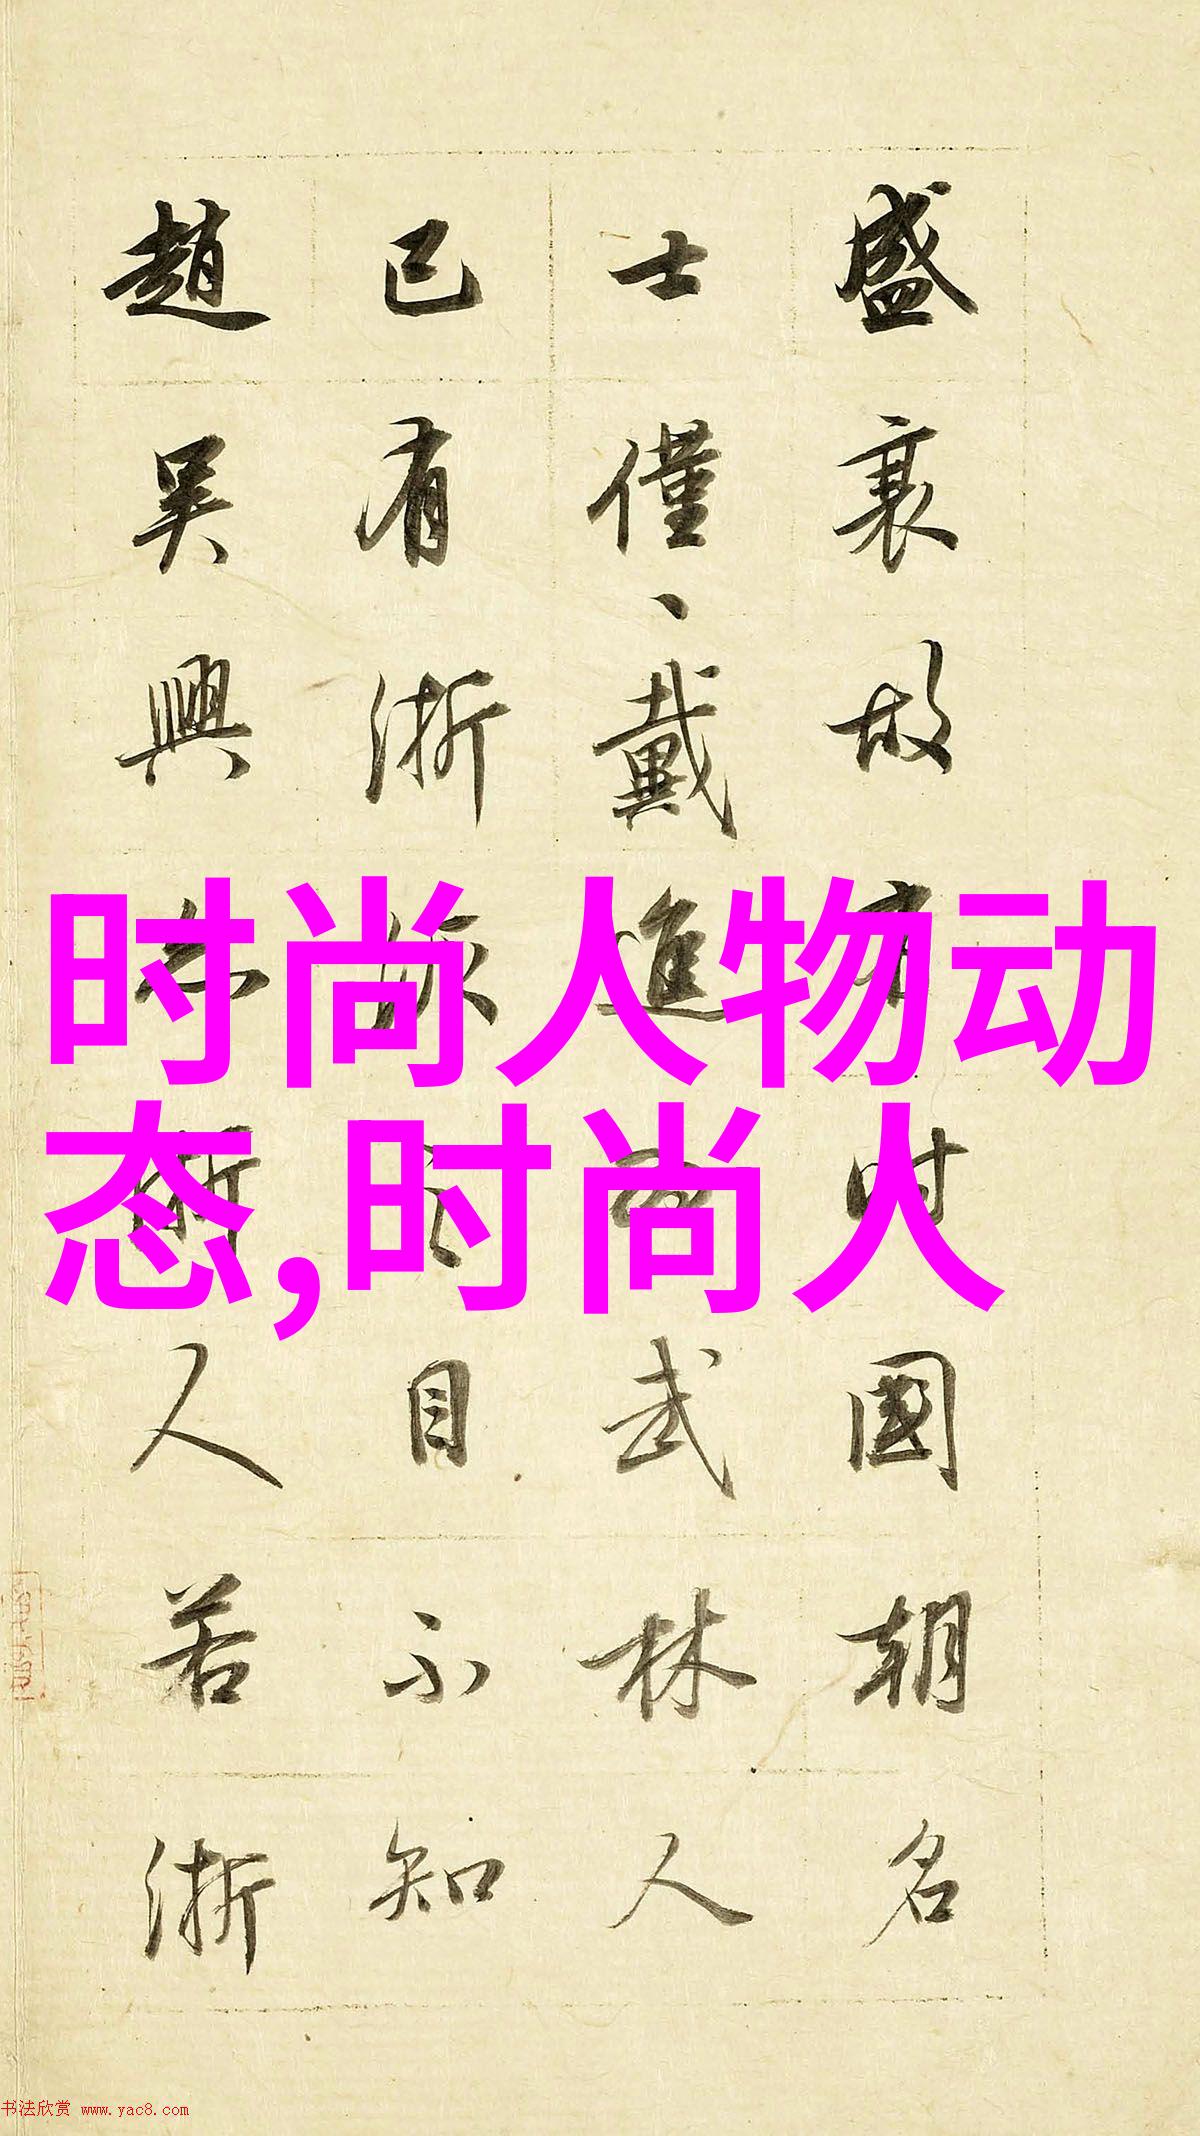 盛衰故有时國朝名
士僅、戴進為武林人
已有浙派之目不知
趙吳興亦浙人若浙
时尚人物动
态,时尚人
书法欣赏 www.yac8.com